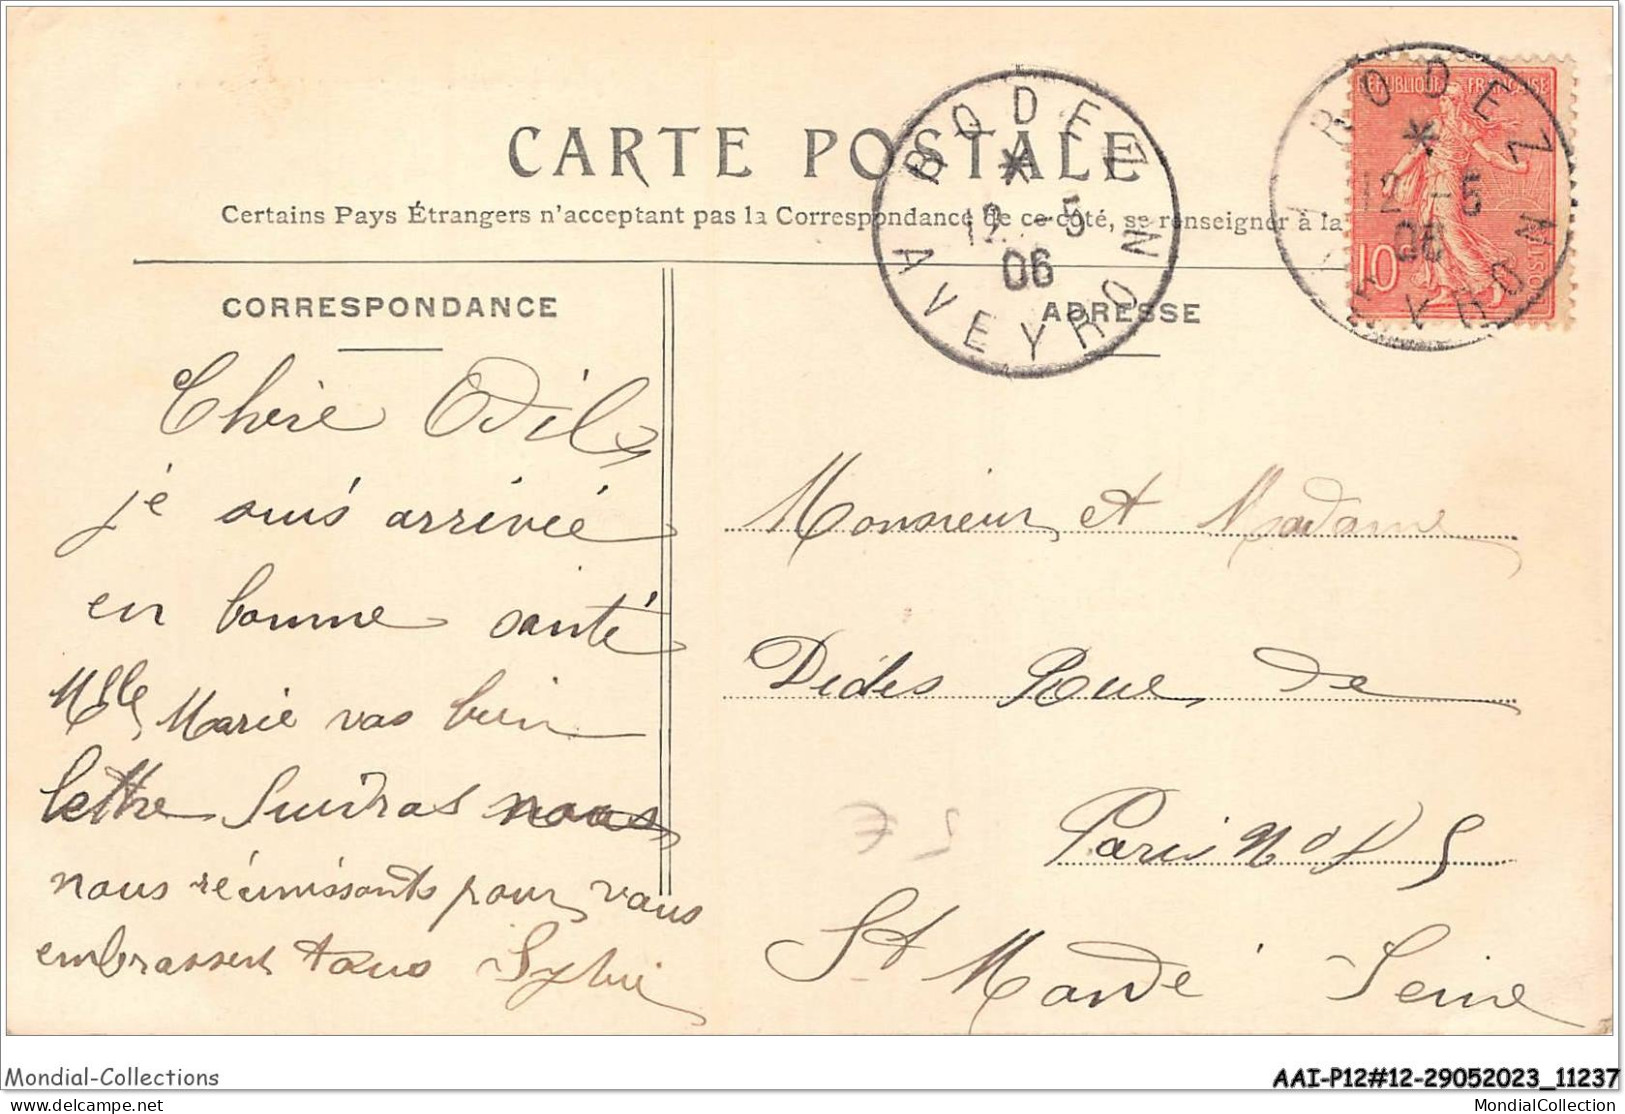 CARTE POSTALE
Certains Pays Étrangers n'acceptant pas la Correspondance de ce côté, se renseigner à la
RODEZ
12 -5
06
AVEYRON
RODEZ
12 -5
06
AVEYRON
REPUBLIQUE FRANÇAISE
10c
POSTES
CORRESPONDANCE
ADRESSE
Chère Odile
je suis arrivée
en bonne santé
Mlle Marie vas bien
lettre Suivras nous
nous réunissants pour vous
embrasser tous Sylvie
Monsieur et Madame
Dides Rue de
Paris No
St Mandé Seine
5 €
Mondial-Collections
AAI-P12#12-29052023_11237
MondialCollection